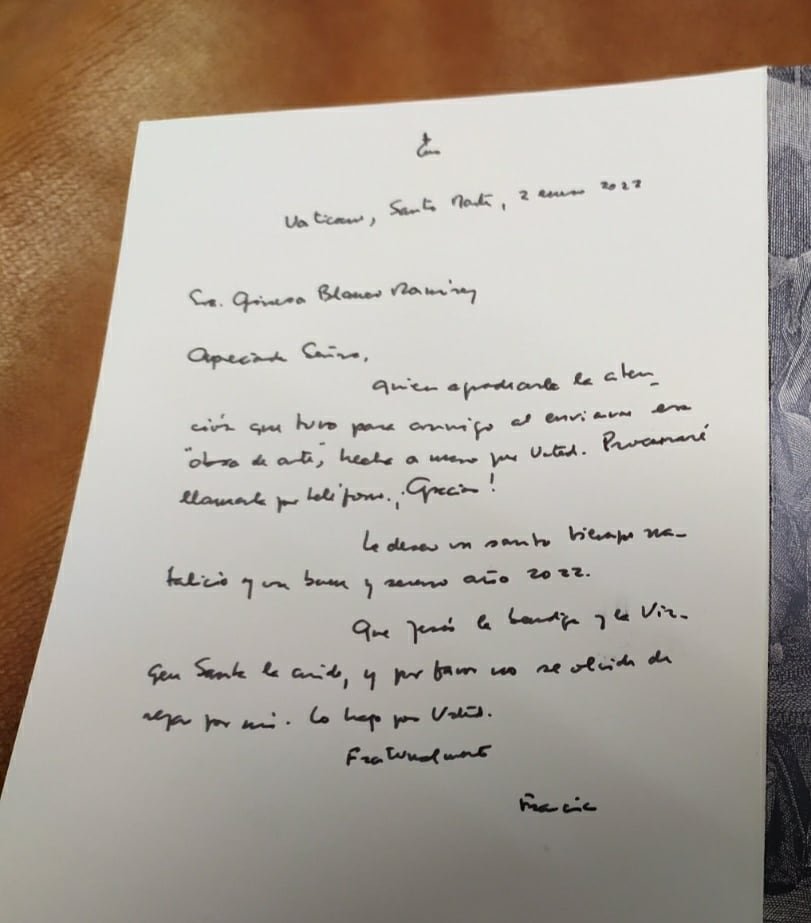 Vaticano, Santa Marta, 2 enero 2022
Sra. Ginesa Blanco Ramírez
Apreciada Señora,
quiero agradecerle la aten-
ción que tuvo para conmigo al enviarme esa
"obra de arte", hecha a mano por Usted. Procuraré
llamarla por teléfono. ¡Gracias!
Le deseo un santo tiempo na-
talicio y un buen y sereno año 2022.
Que Jesús la bendiga y la Vir-
gen Santa la cuide, y por favor no se olvide de
rezar por mí. Lo hago por Usted.
Fraternalmente
Francisco